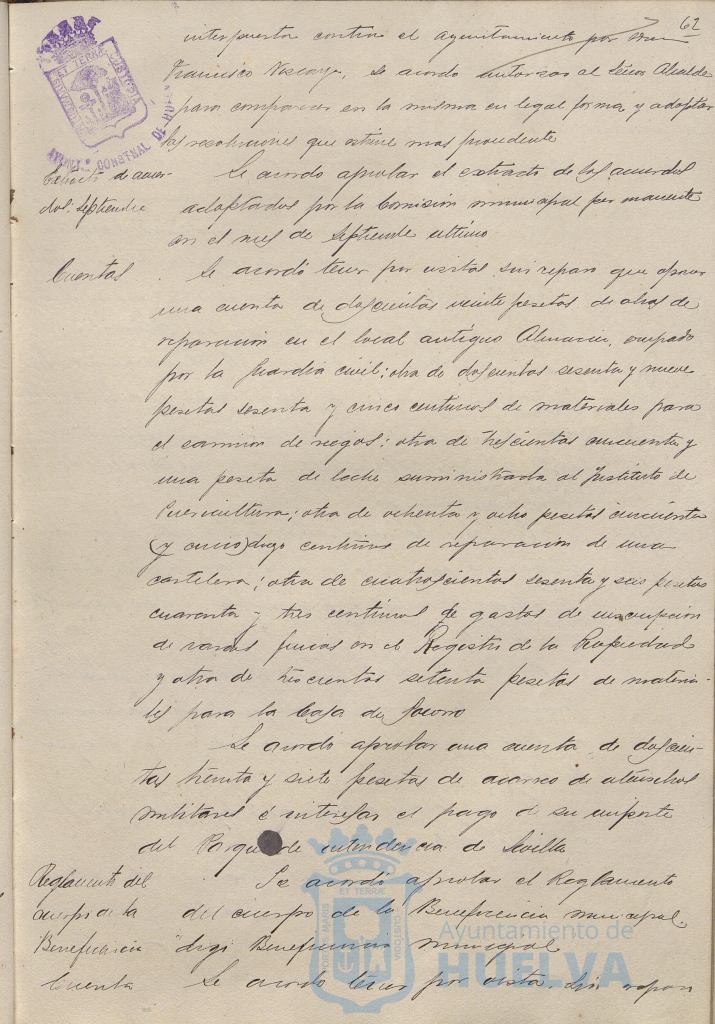 62
interpuesta contra el Ayuntamiento por Don
Francisco Vizcaya, se acordó autorizar al Señor Alcalde
para comparecer en la misma en legal forma y adoptar
las resoluciones que estime mas procedente
Extracto de acuer-
dos. Septiembre
Se acordó aprobar el extracto de los acuerdos
adoptados por la Comisión municipal permanente
en el mes de Septiembre ultimo
Cuentas
Se acordó tener por vistas sin reparo que oponer
una cuenta de doscientas veinte pesetas de obras de
reparación en el local antiguo Almacen, ocupado
por la Guardia civil; otra de doscientas sesenta y nueve
pesetas sesenta y cinco centimos de materiales para
el camion de riegos; otra de trescientas cincuenta y
una peseta de leche suministrada al Instituto de
Puericultura; otra de ochenta y ocho pesetas cincuenta
(y cinco) digo centimos de reparación de una
cartelera; otra de cuatrocientas sesenta y seis pesetas
cuarenta y tres centimos de gastos de inscripcion
de varias fincas en el Registro de la Propiedad
y otra de trescientas setenta pesetas de materia-
les para la Casa de Socorro
Se acordó aprobar una cuenta de doscien-
tas treinta y siete pesetas de acarreo de utensilios
militares é interesar el pago de su importe
del Parque de intendencia de Sevilla
Reglamento del
cuerpo de la
Beneficencia
Se acordó aprobar el Reglamento
del cuerpo de la Beneficencia municipal
digo Beneficencia municipal
Cuenta
Se acordó tener por vista sin reparo
Ayuntamiento de
HUELVA